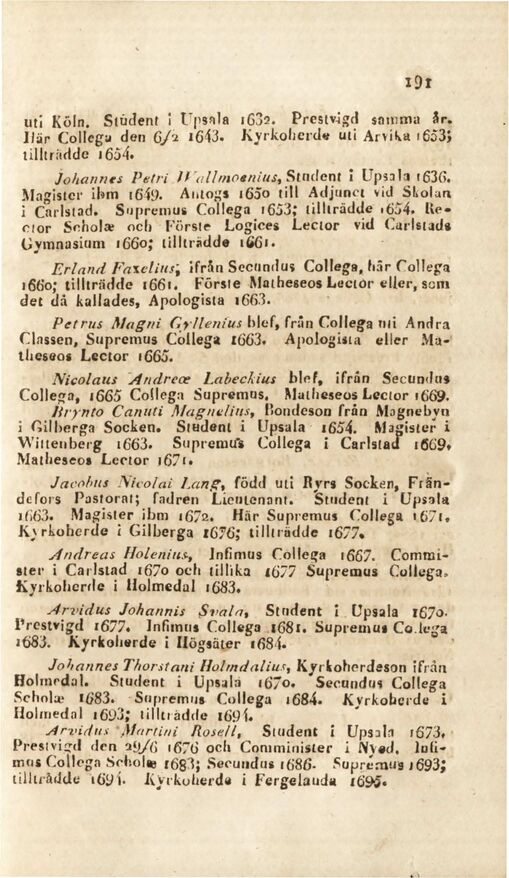 191
uti Köln. Student i Upsala 1632. Prestvigd samma år.
Här Collega den 6/2 1643. Kyrkoherde uti Arvika 1653;
tillträdde 1654.
Johannes Petri Wallmoenius, Student i Upsala 1636.
Magister ibm 1649. Antogs 1650 till Adjunct vid Skolan
i Carlstad. Supremus Collega 1653; tillträdde 1654. Re-
ctor Scholæ och Förste Logices Lector vid Carlstads
Gymnasium 1660; tillträdde 1661.
Erland Faxelius, ifrån Secundus Collega, här Collega
1660; tillträdde 1661. Förste Matheseos Lector eller, som
det då kallades, Apologista 1663.
Petrus Magni Gyllenius blef, från Collega uti Andra
Classen, Supremus Collega 1663. Apologista eller Ma-
theseos Lector 1665.
Nicolaus Andreæ Labeckius blef, ifrån Secundus
Collega, 1665 Collega Supremus. Matheseos Lector 1669.
Brynto Canuti Magnelius, Bondeson från Magnebyn
i Gilberga Socken. Student i Upsala 1654. Magister i
Wittenberg 1663. Supremus Collega i Carlstad 1669.
Matheseos Lector 1671.
Jacobus Nicolai Lang, född uti Ryrs Socken, Frän-
defors Pastorat; fadren Lieutenant. Student i Upsala
1663. Magister ibm 1672. Här Supremus Collega 1671.
Kyrkoherde i Gilberga 1676; tillträdde 1677.
Andreas Holenius, Infimus Collega 1667. Commi-
ster i Carlstad 1670 och tillika 1677 Supremus Collega.
Kyrkoherde i Holmedal 1683.
Arvidus Johannis Svala, Student i Upsala 1670.
Prestvigd 1677. Infimus Collega 1681. Supremus Collega
1683. Kyrkoherde i Högsäter 1684.
Johannes Thorstani Holmdalius, Kyrkoherdeson ifrån
Holmedal. Student i Upsala 1670. Secundus Collega
Scholæ 1683. Supremus Collega 1684. Kyrkoherde i
Holmedal 1693; tillträdde 1694.
Arvidus Martini Rosell, Student i Upsala 1673.
Prestvigd den 29/6 1676 och Comminister i Nyed. Infi-
mus Collega Scholæ 1683; Secundus 1686. Supremus 1693;
tillträdde 1694. Kyrkoherde i Fergelanda 1695.